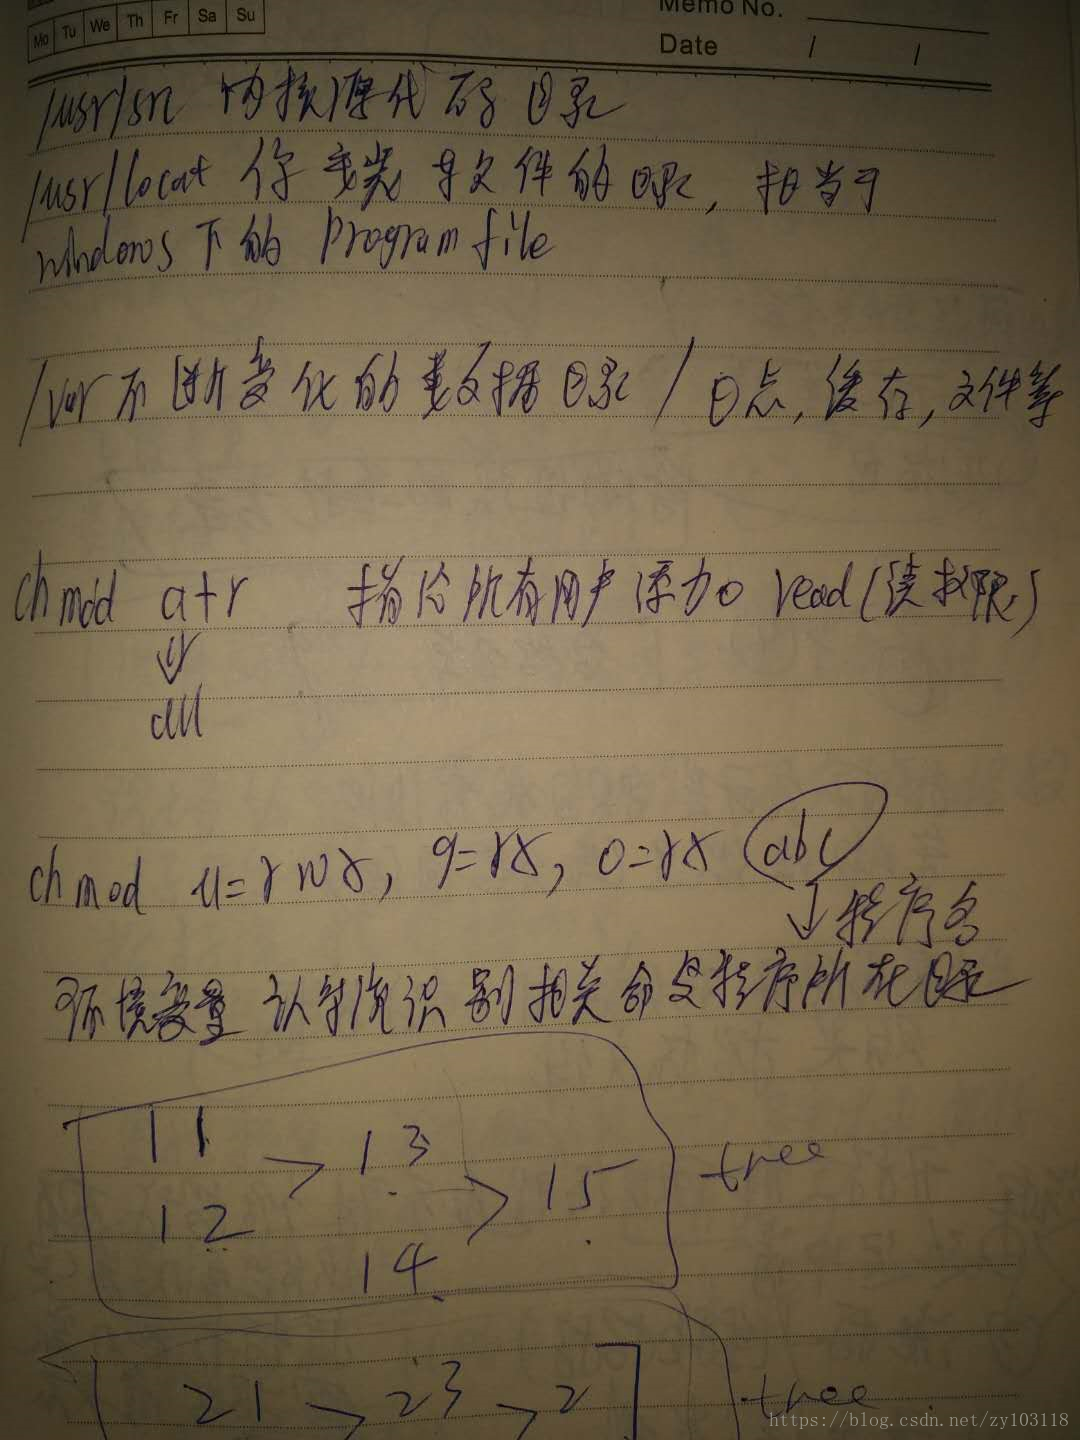 Mo Tu We Th Fr Sa Su
Memo No.
Date / /
/usr/src 内核源代码目录
/usr/local 你安装软件的目录, 相当于
windows下的 Program file
/var 不断变化的数据目录 / 日志, 缓存, 文件等
chmod a+r 指给所有用户添加 read (读权限)
all
chmod u=rwx, g=rx, o=rx abc
程序名
环境变量 识别相关命令程序所在目录
11
> 13
12
> 15
14
tree
21 > 23 > 2
tree
https://blog.csdn.net/zy103118